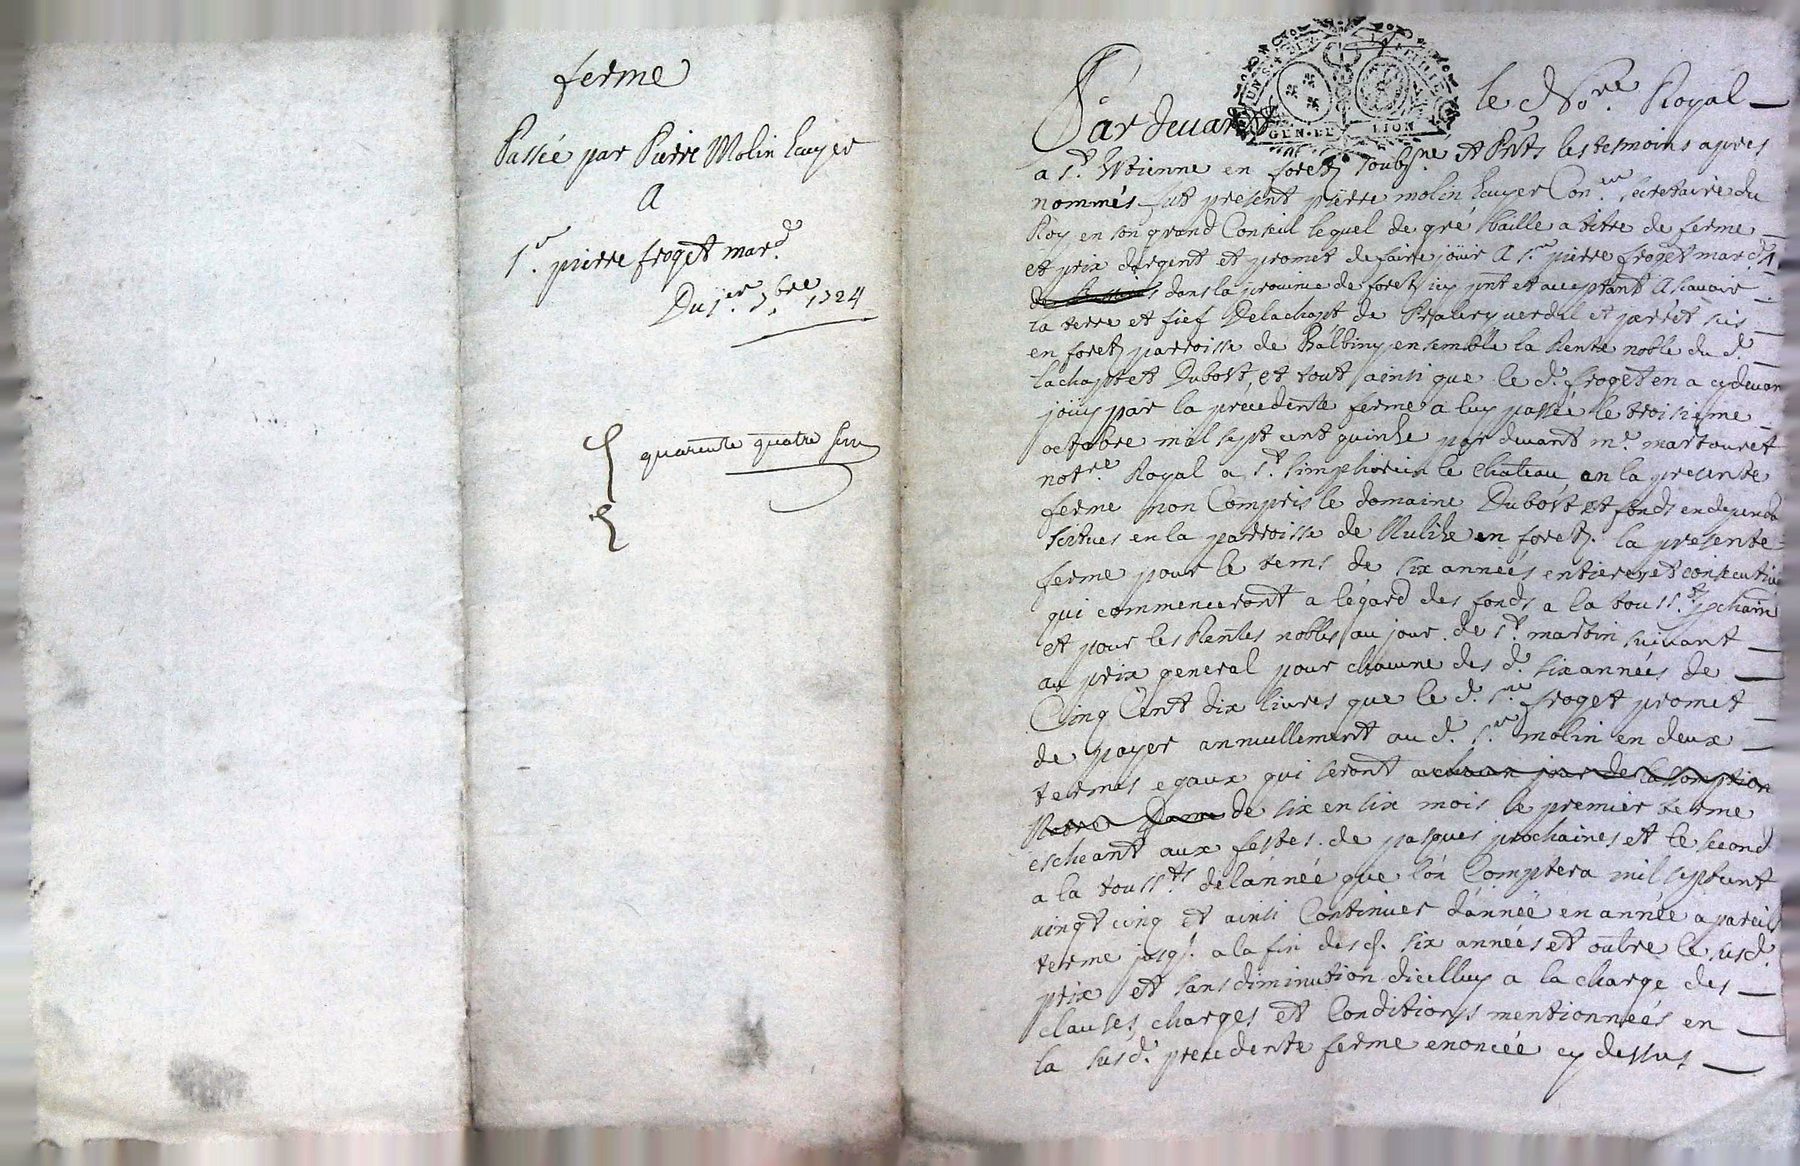 ferme
Passée par Pierre Molin Ecuyer
A
Sr. pierre froget mard.
Du jer 7bre 1724
quarente quatre
GEN DE LION
Par devant le No.re Royal
a St. Etienne en foretz soubsne. et Pnts les tesmoins apres
nommés fut present pierre molin Ecuyer Coner. secretaire du
Roy en son grand Conseil lequel de gré baille a titre de ferme
et prix d'argent et promet de faire joüir A Sr. pierre froget mard.
dans la province de foretz icy pnt et acceptant A scavoir
la terre et fief Delachapt de et parret sis
en foretz parroisse de Balbiny ensemble la Rente noble du d.
lachapt et Dubost, et tout ainsi que le d. froget en a cydevan
joüy par la precedente ferme a luy passée le troisieme
octobre mil sept cent quinze par devant me. martouret
notre. Royal a St. Simphorien le chateau, en la presente
ferme non Compris le domaine Dubost et fonds en dependa
scitues en la parroisse de Nulize en foretz. la presente
ferme pour le tems de six années entieres et consecutive
qui commenceront a légard des fonds a la touss.ts pchaine
et pour les Rentes nobles au jour de St. martin suivant
au prix general pour chacune des d. six années de
Cinq Cent dix livres que le d. Sr. froget promet
de payer annuellement au d. Sr. molin en deux
termes egaux qui seront a chacun jour de lasomption
Notre Dame de six en six mois le premier terme
escheant aux festes de pasques prochaines et le second
a la touss.ts de l'année que l'on Comptera mil septcent
vingt cinq et ainsi Continuer d'année en année a pareils
terme jusq. a la fin desd. six années et outre le susd.
prix et sans diminution dicelluy a la charge des
clauses charges et Conditions mentionnées en
la susd. precedente ferme enoncée cy dessus